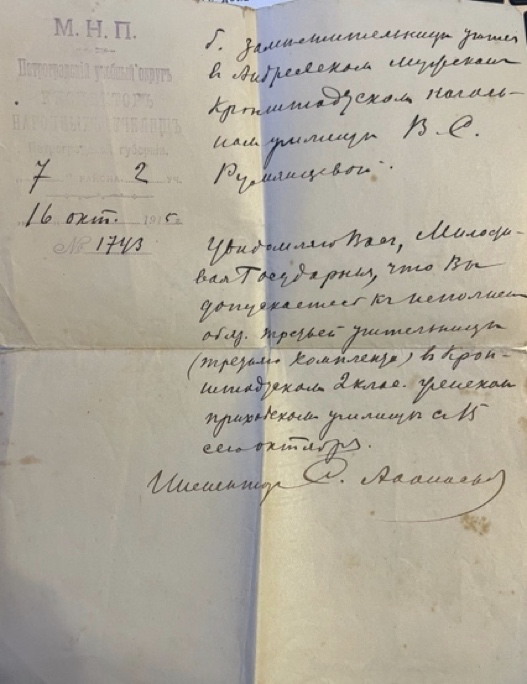 М. Н. П.
Петроградскій учебный округъ
ИНСПЕКТОРЪ
НАРОДНЫХЪ УЧИЛИЩЪ
Петроградской губерніи
7 района 2 уч.
16 окт. 1915 г.
№ 1743
б. заместительнице учителя
в Андреевском мужском
Кронштадтском началь-
ном училище В. С.
Румянцевой.
Уведомляю Вас, Милости-
вая Государыня, что Вы
допускаетесь к исполнению
обяз. третьей учительницы
(третьяго комплекта) в Крон-
штадтском 2 клас. женском
приходском училище с 15
сего октября.
Инспектор С.